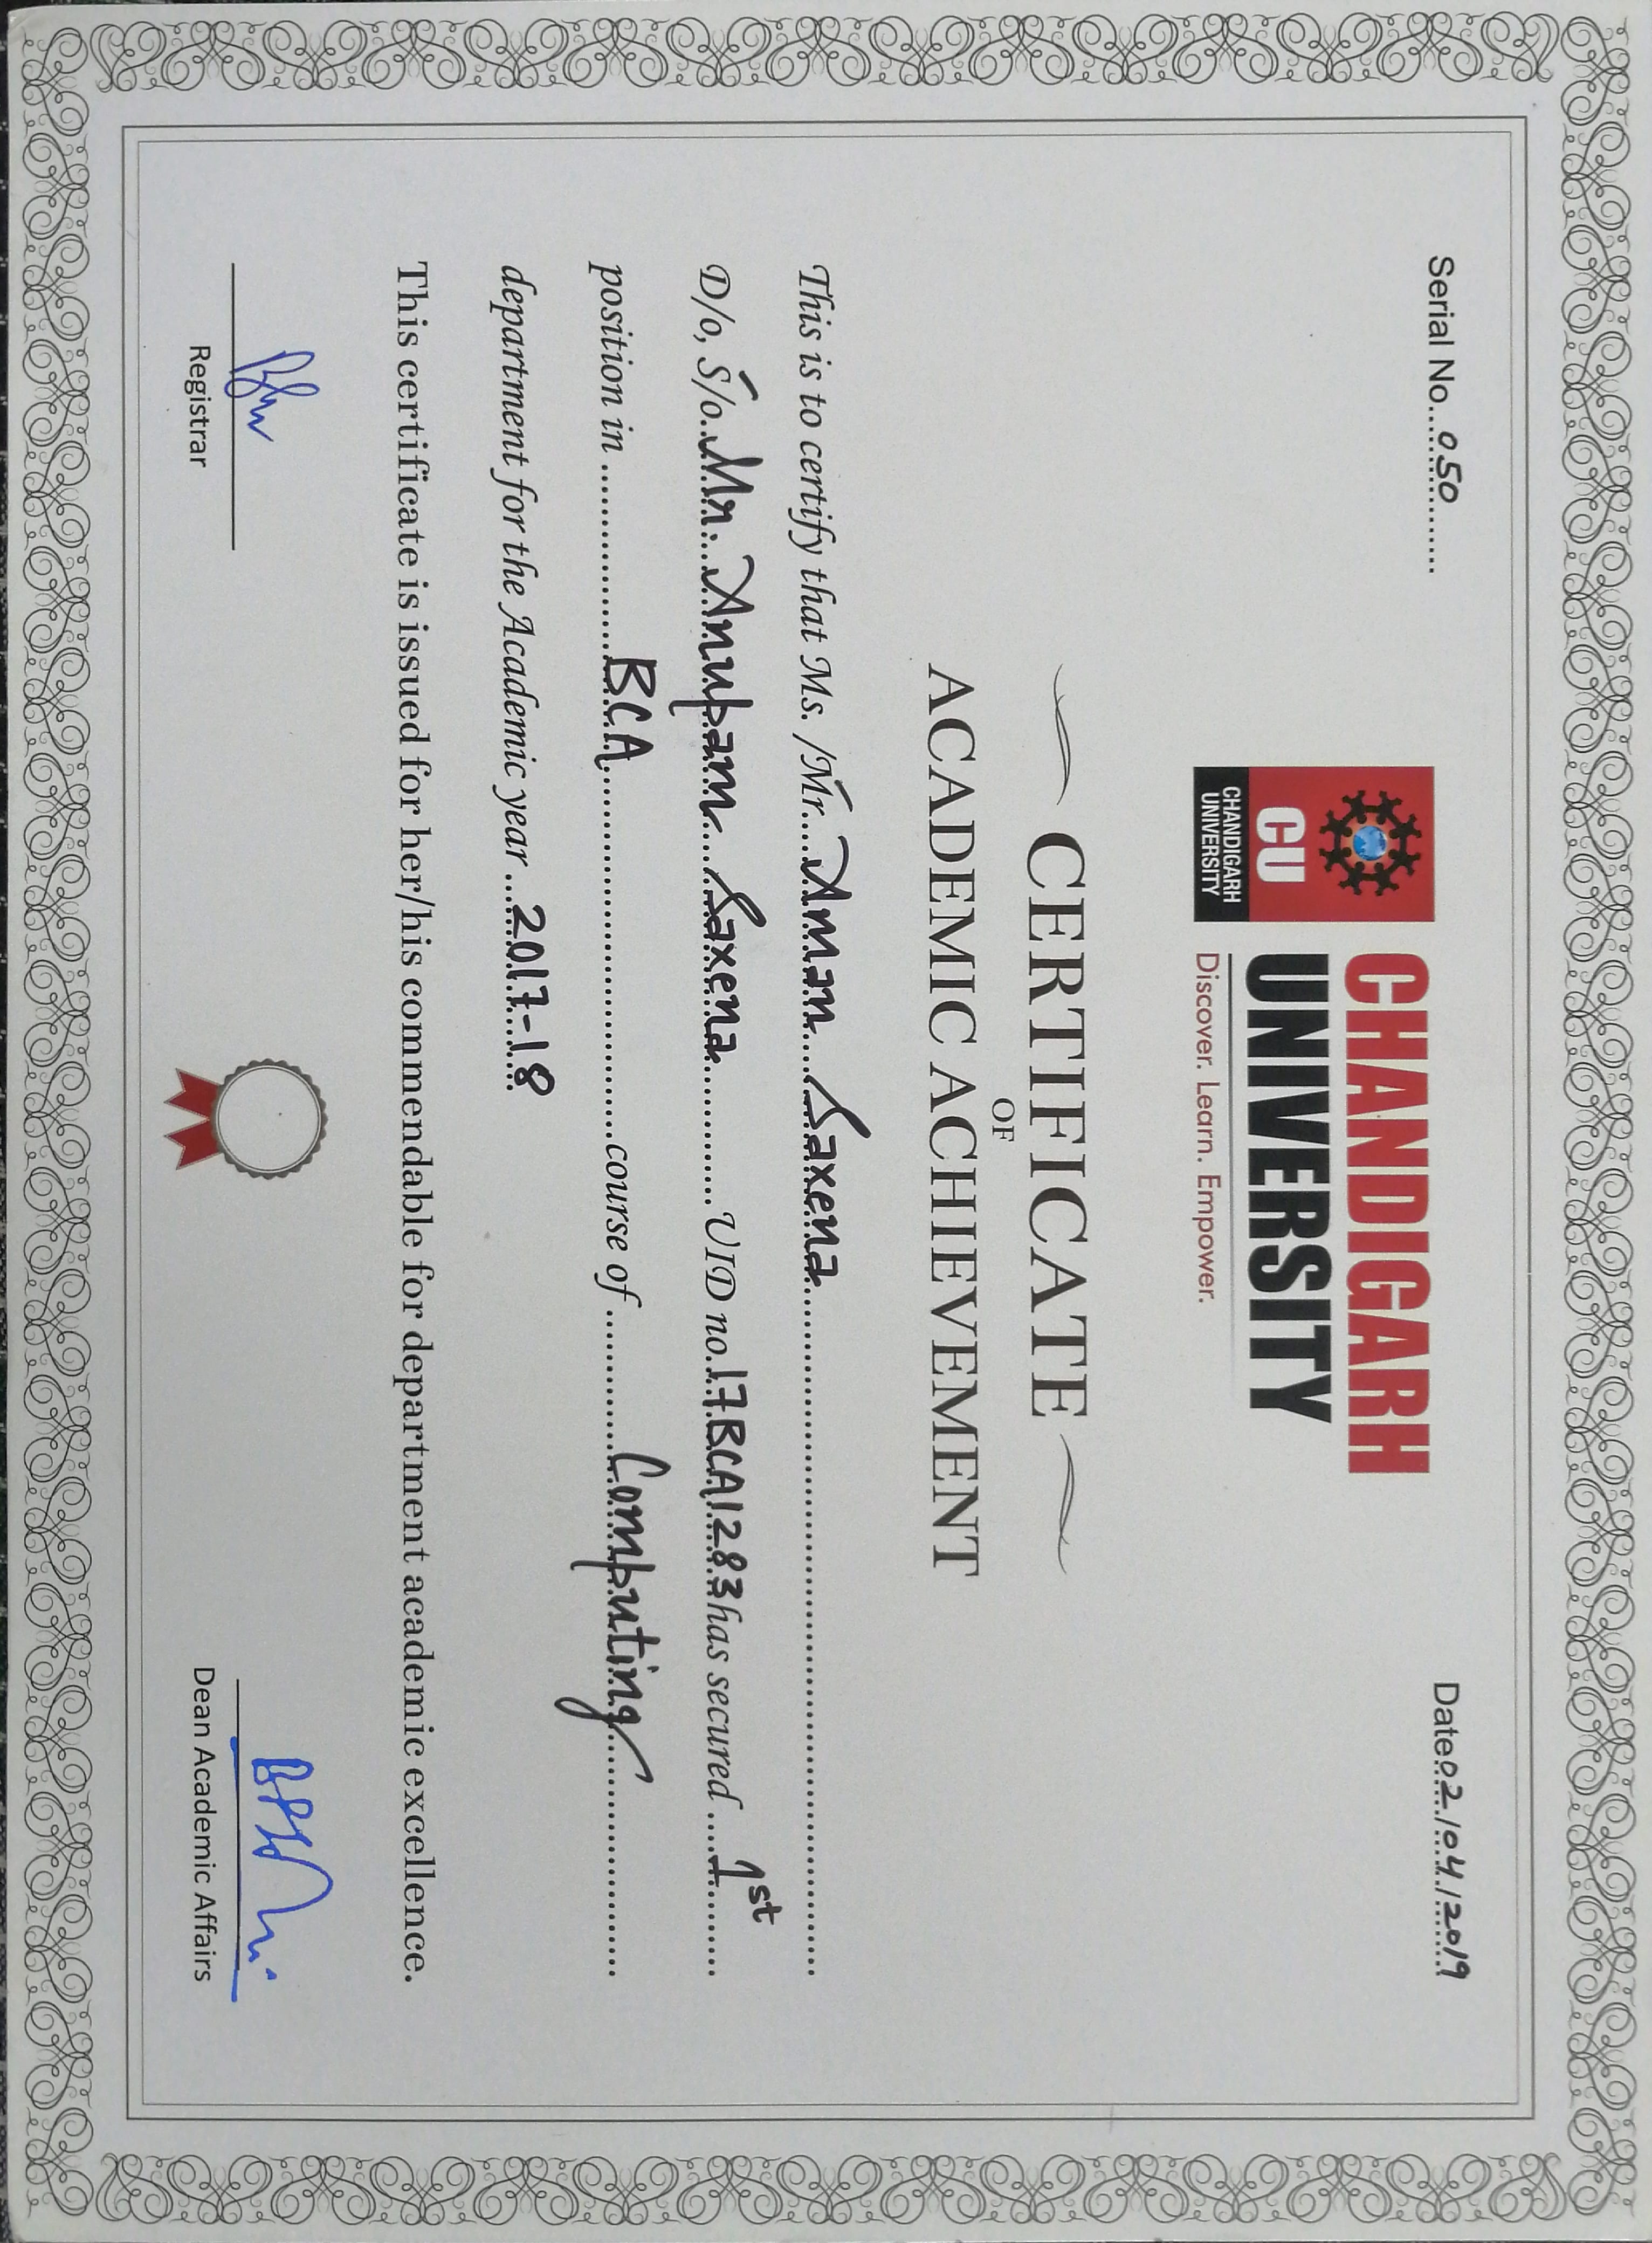 Serial No....050............
Date02/04/2019
CU
CHANDIGARH
UNIVERSITY
CHANDIGARH
UNIVERSITY
Discover. Learn. Empower.
CERTIFICATE
OF
ACADEMIC ACHIEVEMENT
This is to certify that Ms. /Mr....Aman Saxena
D/o, S/o..Mr. Anupam Saxena UID no.17BCA1283 has secured 1st
position in BCA course of Computing
department for the Academic year 2017-18
This certificate is issued for her/his commendable for department academic excellence.
Registrar
Dean Academic Affairs